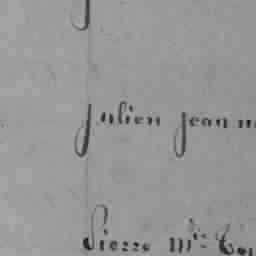 julien jean
pierre m^ie